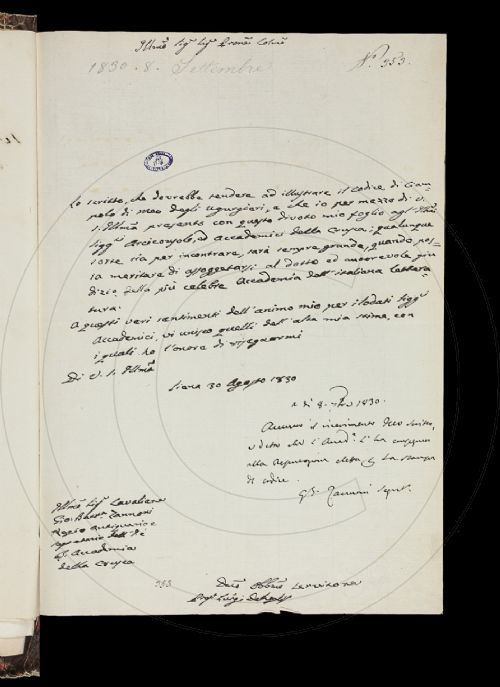 Illmo Sig. Sig. Prone Colmo
1830. 8. Settembre
N. 353.
Lo scritto, che dovrebbe tendere ad illustrare il Codice di Ciam
polo di Meo degli Ugurgieri, e che io per mezzo di V.
S. Illma presento con questo divoto mio foglio agl' Illmi
Siggri Arciconsolo, ed Accademici della Crusca; qualunque
sorte sia per incontrare, sarà sempre grande, quando pos
sa meritare di assoggettarsi al dotto ed autorevole giu
dizio della più celebre Accademia dell'italiana Lettera
tura.
A questi veri sentimenti dell'animo mio per i lodati Siggri
Accademici, vi unisco quelli dell'alta mia stima, con
i quali ho l'onore di rassegnarmi
Di V. S. Illma
Siena 30 Agosto 1830
a dì 8. 7bre 1830.
scritto,
alla la stampa
di codice.
G.B. Zannoni Segret.
Illmo Sig. Cavaliere
Gio. Batta Zannoni
Regio Antiquario e
Segretario dell'I e
R. Accademia
della Crusca
353
Devmo Obbmo Servitore
Luigi